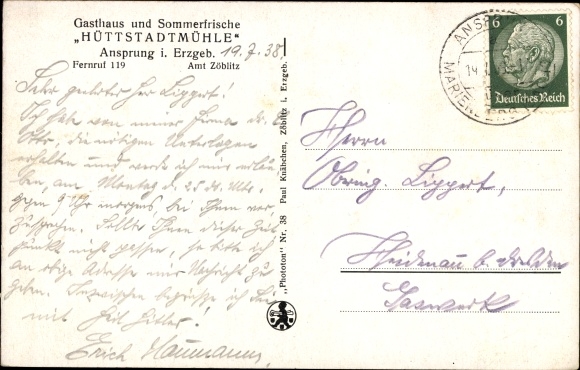 Gasthaus und Sommerfrische
„HÜTTSTADTMÜHLE“
Ansprung i. Erzgeb. 19.7.38
Fernruf 119 Amt Zöblitz
Sehr geehrter Herr Lippert!
Ich habe von meiner Firma die
die nötigen Unterlagen
erhalten und werde ich mir erlau-
ben, am Montag d. 25. d. Mts.,
gegen 9 Uhr morgens bei Ihnen vor-
zusprechen. Sollte Ihnen dieser Zeit-
punkt nicht passen, so bitte ich
an obige Adresse um Nachricht zu
geben. Inzwischen begrüsse ich Sie
mit Heil Hitler!
Erich Naumann
„Phototon“ Nr. 38 Paul Knäbchen, Zöblitz i. Erzgeb.
ANSPRUNG
MARIENBERG
6 6
Deutsches Reich
Herrn
Obring. Lippert,
Heidenau b. Dresden
Gaswerk